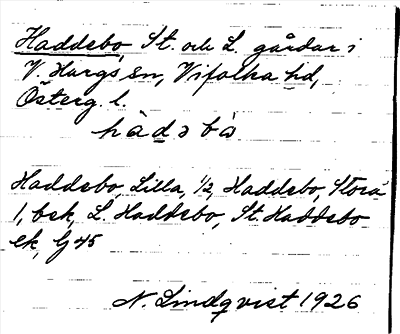 Haddebo, St. och L. gårdar i
V. Hargs sn, Vifolka hd,
Österg. l.
hàdəbà
Haddebo, Lilla, 1/2, Haddebo, Stora
1, bek, L. Haddebo, St. Haddebo
ek, G 45
N. Lindqvist 1926